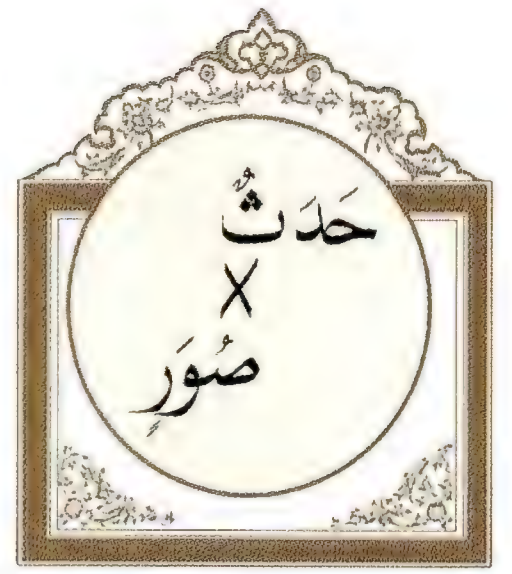 حَدَثٌ
X
صُوَرٍ